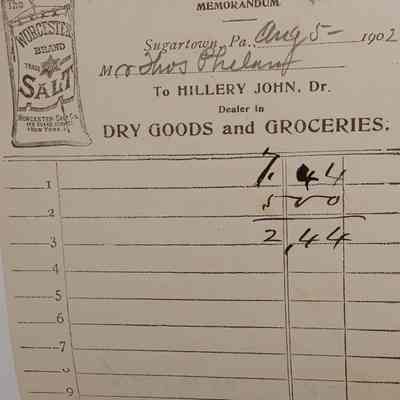 The
WORCESTER
BRAND
TRADE MARK
SALT
WORCESTER SALT CO.
NEW YORK
MEMORANDUM
Sugartown, Pa., Aug 5- 1902
M r Thos Phelan
To HILLERY JOHN, Dr.
Dealer in
DRY GOODS and GROCERIES.
1 7.44
2 500
3 2,44
4
5
6
7
8
9